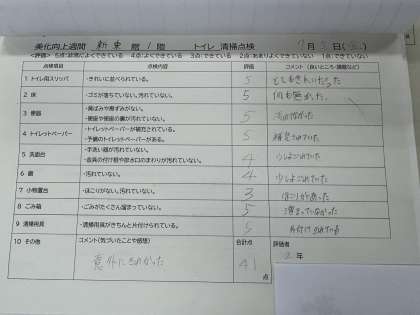 美化向上週間 新東館1階 トイレ清掃点検 7月
<評価> 5点:非常によくできている 4点:よくできている 3点:できている 2点:あまりよくできていない 1点:できていない
点検項目 点検内容 評価 コメント(良いところ・課題など)
1 トイレ用スリッパ ・きれいに並べられている。 5 とてもきれいだった
2 床 ・ゴミが落ちていない。汚れていない。 5 何も無かった。
3 便器 ・黄ばみや黒ずみがない。
・便座や便座の裏が汚れていない。 5
4 トイレットペーパー ・トイレットペーパーが補充されている。
・予備のトイレットペーパーがある。 5 補充されていた
5 洗面台 ・手洗い器が汚れていない。
・金具の付け根や吹き出口のまわりが汚れていない。 4 少しよごれていた
6 鏡 ・汚れていない。 4 少しよごれていた
7 小物置台 ・ほこりがない。汚れていない。 3 ほこりがあった
8 ごみ箱 ・ごみがたくさん溜まっていない。 5 溜まっていなかった
9 清掃用具 ・清掃用具がきちんと片付けられている。 5 片付けられている
10 その他 コメント(気づいたことや感想) 合計点 評価者
意外にきれかった 41 点 2年